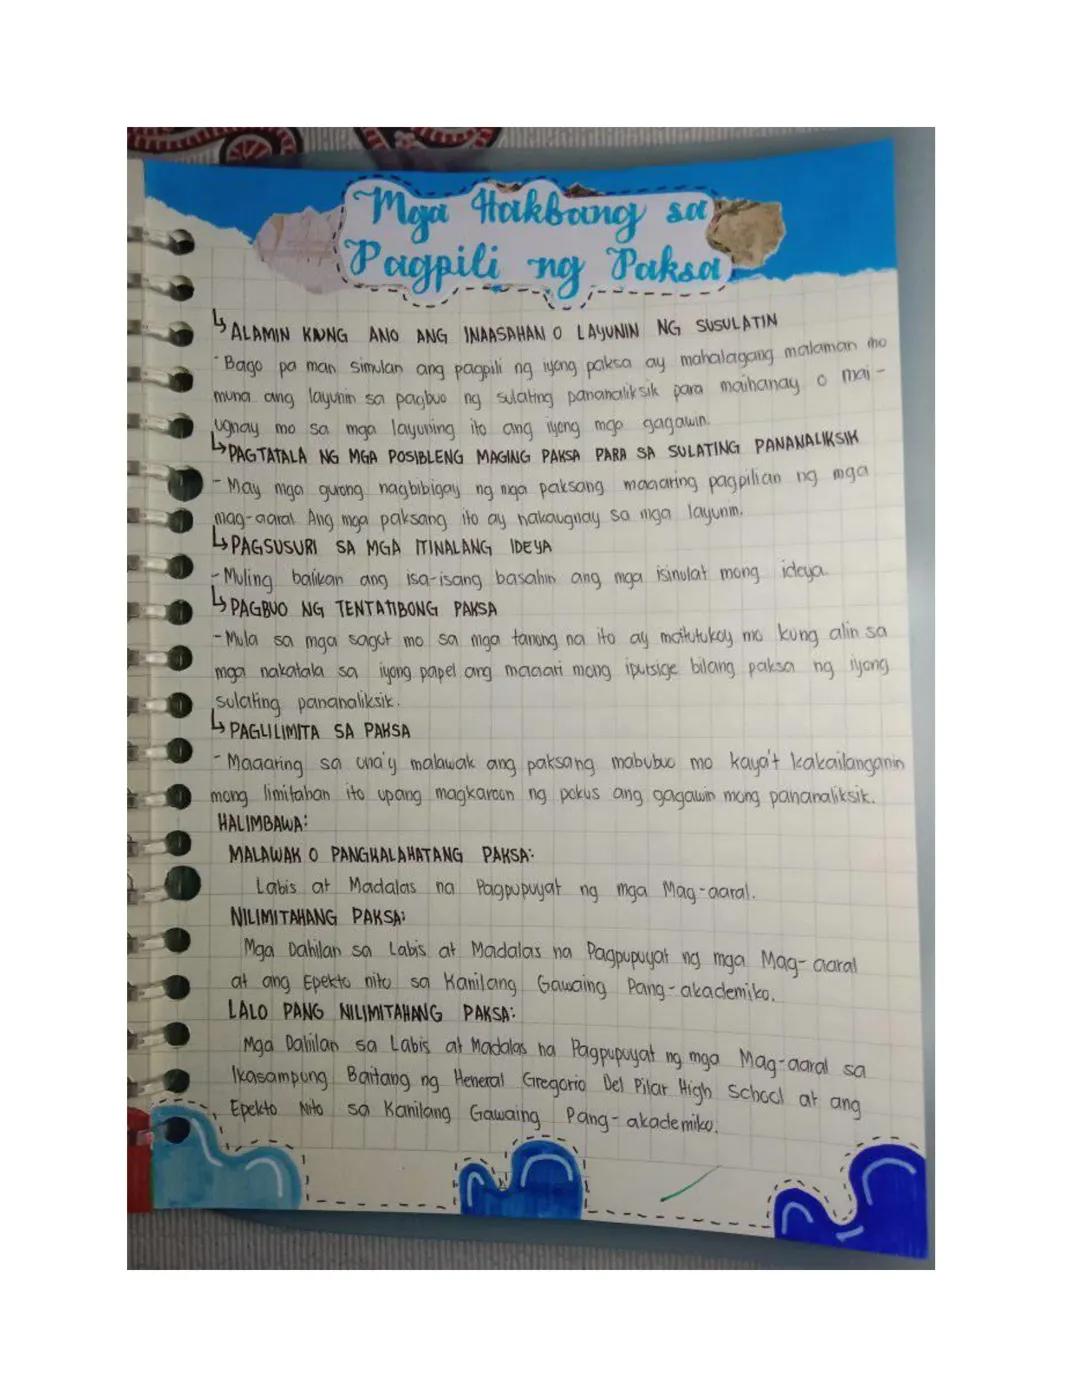 Mga Hakbang sa
Pagpili ng Paksa
↳ ALAMIN KUNG ANO ANG INAASAHAN O LAYUNIN NG SUSULATIN
- Bago pa man simulan ang pagpili ng iyong paksa ay mahalagang malaman mo
muna ang layunin sa pagbuo ng sulating pananaliksik para maihanay o mai-
ugnay mo sa mga layuning ito ang iyong mga gagawin.
↳ PAGTATALA NG MGA POSIBLENG MAGING PAKSA PARA SA SULATING PANANALIKSIK
- May mga gurong nagbibigay ng mga paksang maaaring pagpilian ng mga
mag-aaral. Ang mga paksang ito ay nakaugnay sa mga layunin.
↳ PAGSUSURI SA MGA ITINALANG IDEYA
- Muling balikan ang isa-isang basahin ang mga isinulat mong ideya.
↳ PAGBUO NG TENTATIBONG PAKSA
- Mula sa mga sagot mo sa mga tanong na ito ay matutukoy mo kung alin sa
mga nakatala sa iyong papel ang maaari mong ipursige bilang paksa ng iyong
sulating pananaliksik.
↳ PAGLILIMITA SA PAKSA
- Maaaring sa una'y malawak ang paksang mabubuo mo kaya't kakailanganin
mong limitahan ito upang magkaroon ng pokus ang gagawin mong pananaliksik.
HALIMBAWA:
MALAWAK O PANGKALAHATANG PAKSA:
Labis at Madalas na Pagpupuyat ng mga Mag-aaral.
NILIMITAHANG PAKSA:
Mga Dahilan sa Labis at Madalas na Pagpupuyat ng mga Mag-aaral
at ang Epekto nito sa Kanilang Gawaing Pang-akademiko.
LALO PANG NILIMITAHANG PAKSA:
Mga Dahilan sa Labis at Madalas na Pagpupuyat ng mga Mag-aaral sa
Ikasampung Baitang ng Heneral Gregorio Del Pilar High School at ang
Epekto Nito sa Kanilang Gawaing Pang-akademiko.